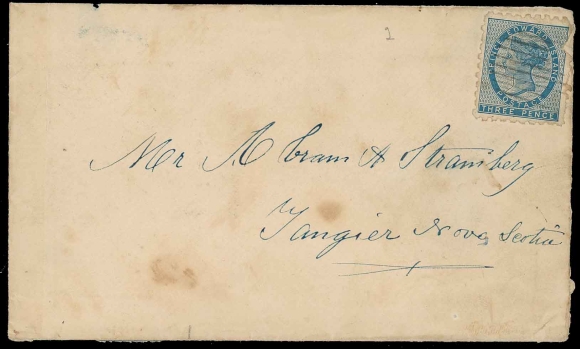 1
PRINCE EDWARD ISLAND
POSTAGE
THREE PENCE
Mr Abram A Stramberg
Tangier Nova Scotia